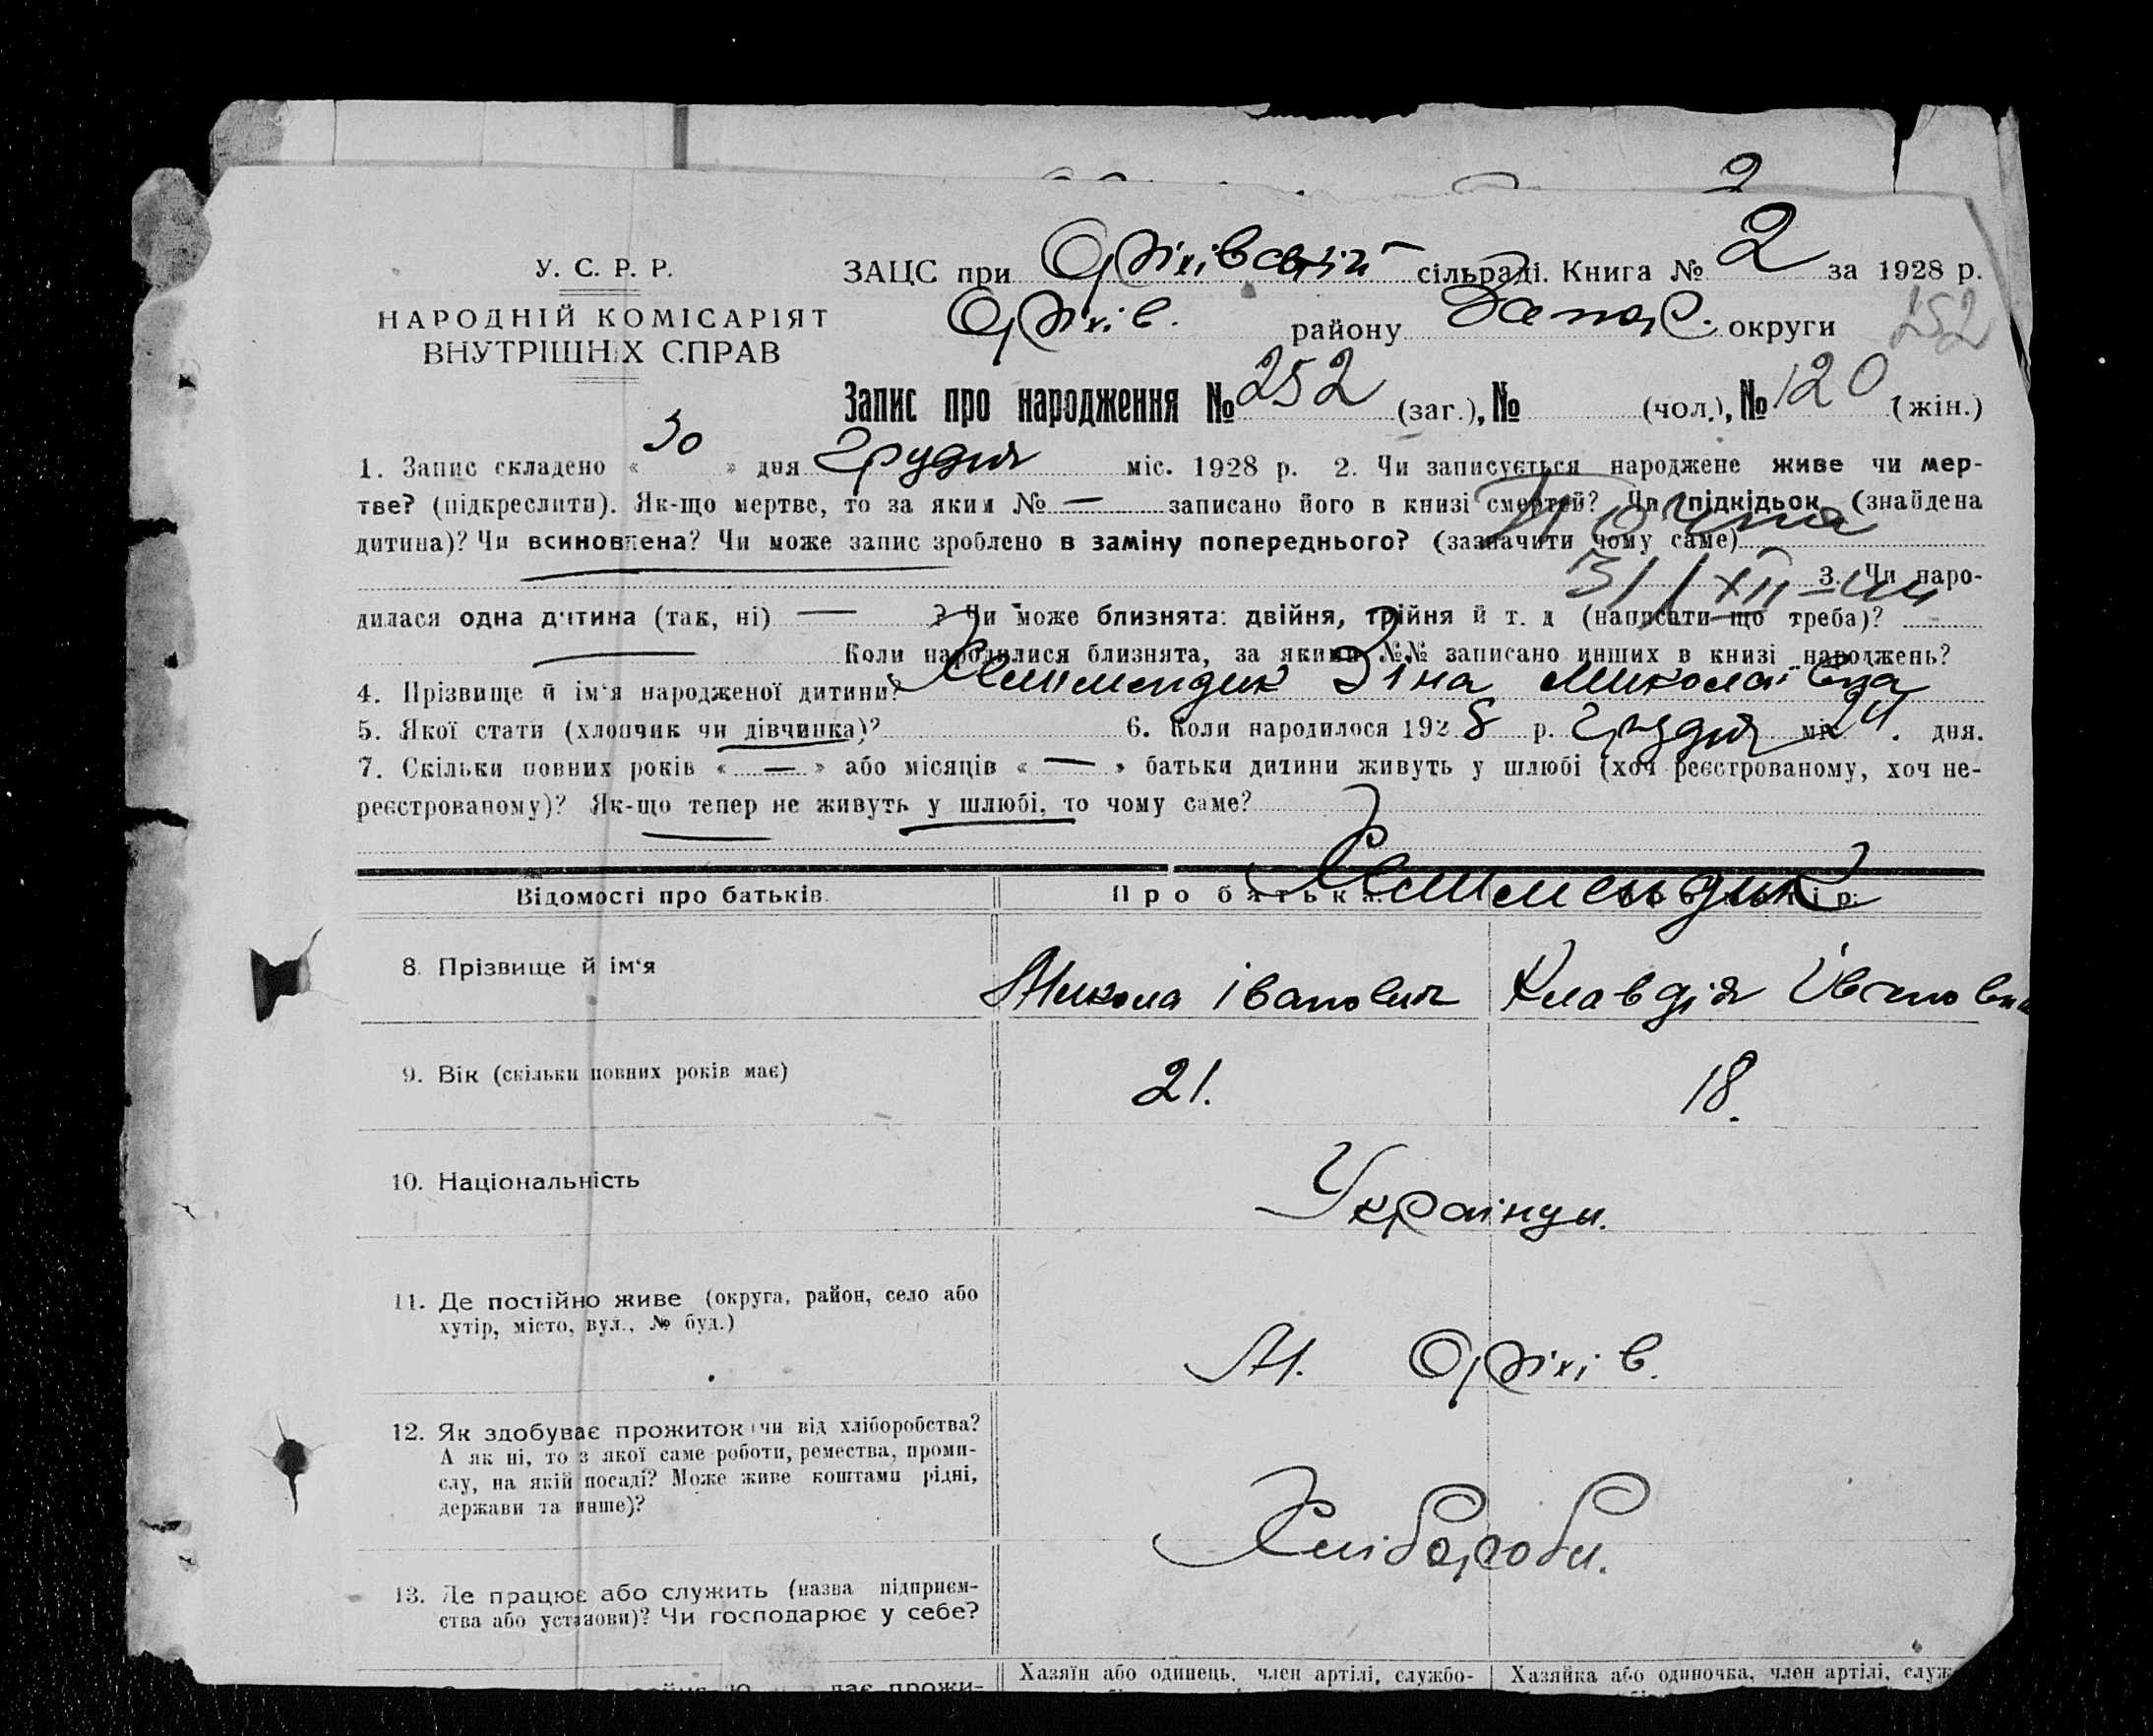 2
У. С. Р. Р.
НАРОДНІЙ КОМІСАРІЯТ
ВНУТРІШНІХ СПРАВ
ЗАЦС при Оріхівській сільраді. Книга № 2 за 1928 р.
Оріхів. району Запор. округи
252
Запис про народження № 252 (заг.), № (чол.), № 120 (жін.)
1. Запис складено « 30 » дня грудня міс. 1928 р. 2. Чи записується народжене живе чи мер-
тве? (підкреслити). Як-що мертве, то за яким № — записано його в книзі смертей? Чи підкідьок (знайдена
дитина)? Чи всиновлена? Чи може запис зроблено в заміну попереднього? (зазначити чому саме)
31/XII-44
3. Чи наро-
дилася одна дитина (так, ні) — ? Чи може близнята: двійня, трійня й т. д (написати що треба)?
Коли народилися близнята, за якими №№ записано инших в книзі народжень?
4. Прізвище й ім'я народженої дитини? Зіна Миколаївна
5. Якої стати (хлопчик чи дівчинка)? 6. Коли народилося 1928 р. грудня міс. 24. дня.
7. Скільки повних років « — » або місяців « — » батьки дитини живуть у шлюбі (хоч реєстрованому, хоч не-
реєстрованому)? Як-що тепер не живуть у шлюбі, то чому саме?
Відомості про батьків. Про батька.
8. Прізвище й ім'я Микола Іванович Клавдія
9. Вік (скільки повних років має) 21. 18.
10. Національність Українци.
11. Де постійно живе (округа, район, село або
хутір, місто, вул., № буд.)
М. Оріхів.
12. Як здобуває прожиток: чи від хліборобства?
А як ні, то з якої саме роботи, ремества, проми-
слу, на якій посаді? Може живе коштами рідні,
держави та инше)?
Хлібороби.
13. Де працює або служить (назва підприєм-
ства або установи)? Чи господарює у себе?
Хазяїн або одинець, член артілі, службо- Хазяйка або одиночка, член артілі, служ